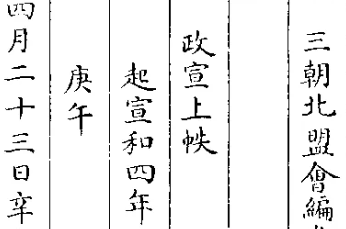 三朝北盟會編
政宣上帙
起宣和四年
庚午
四月二十三日辛